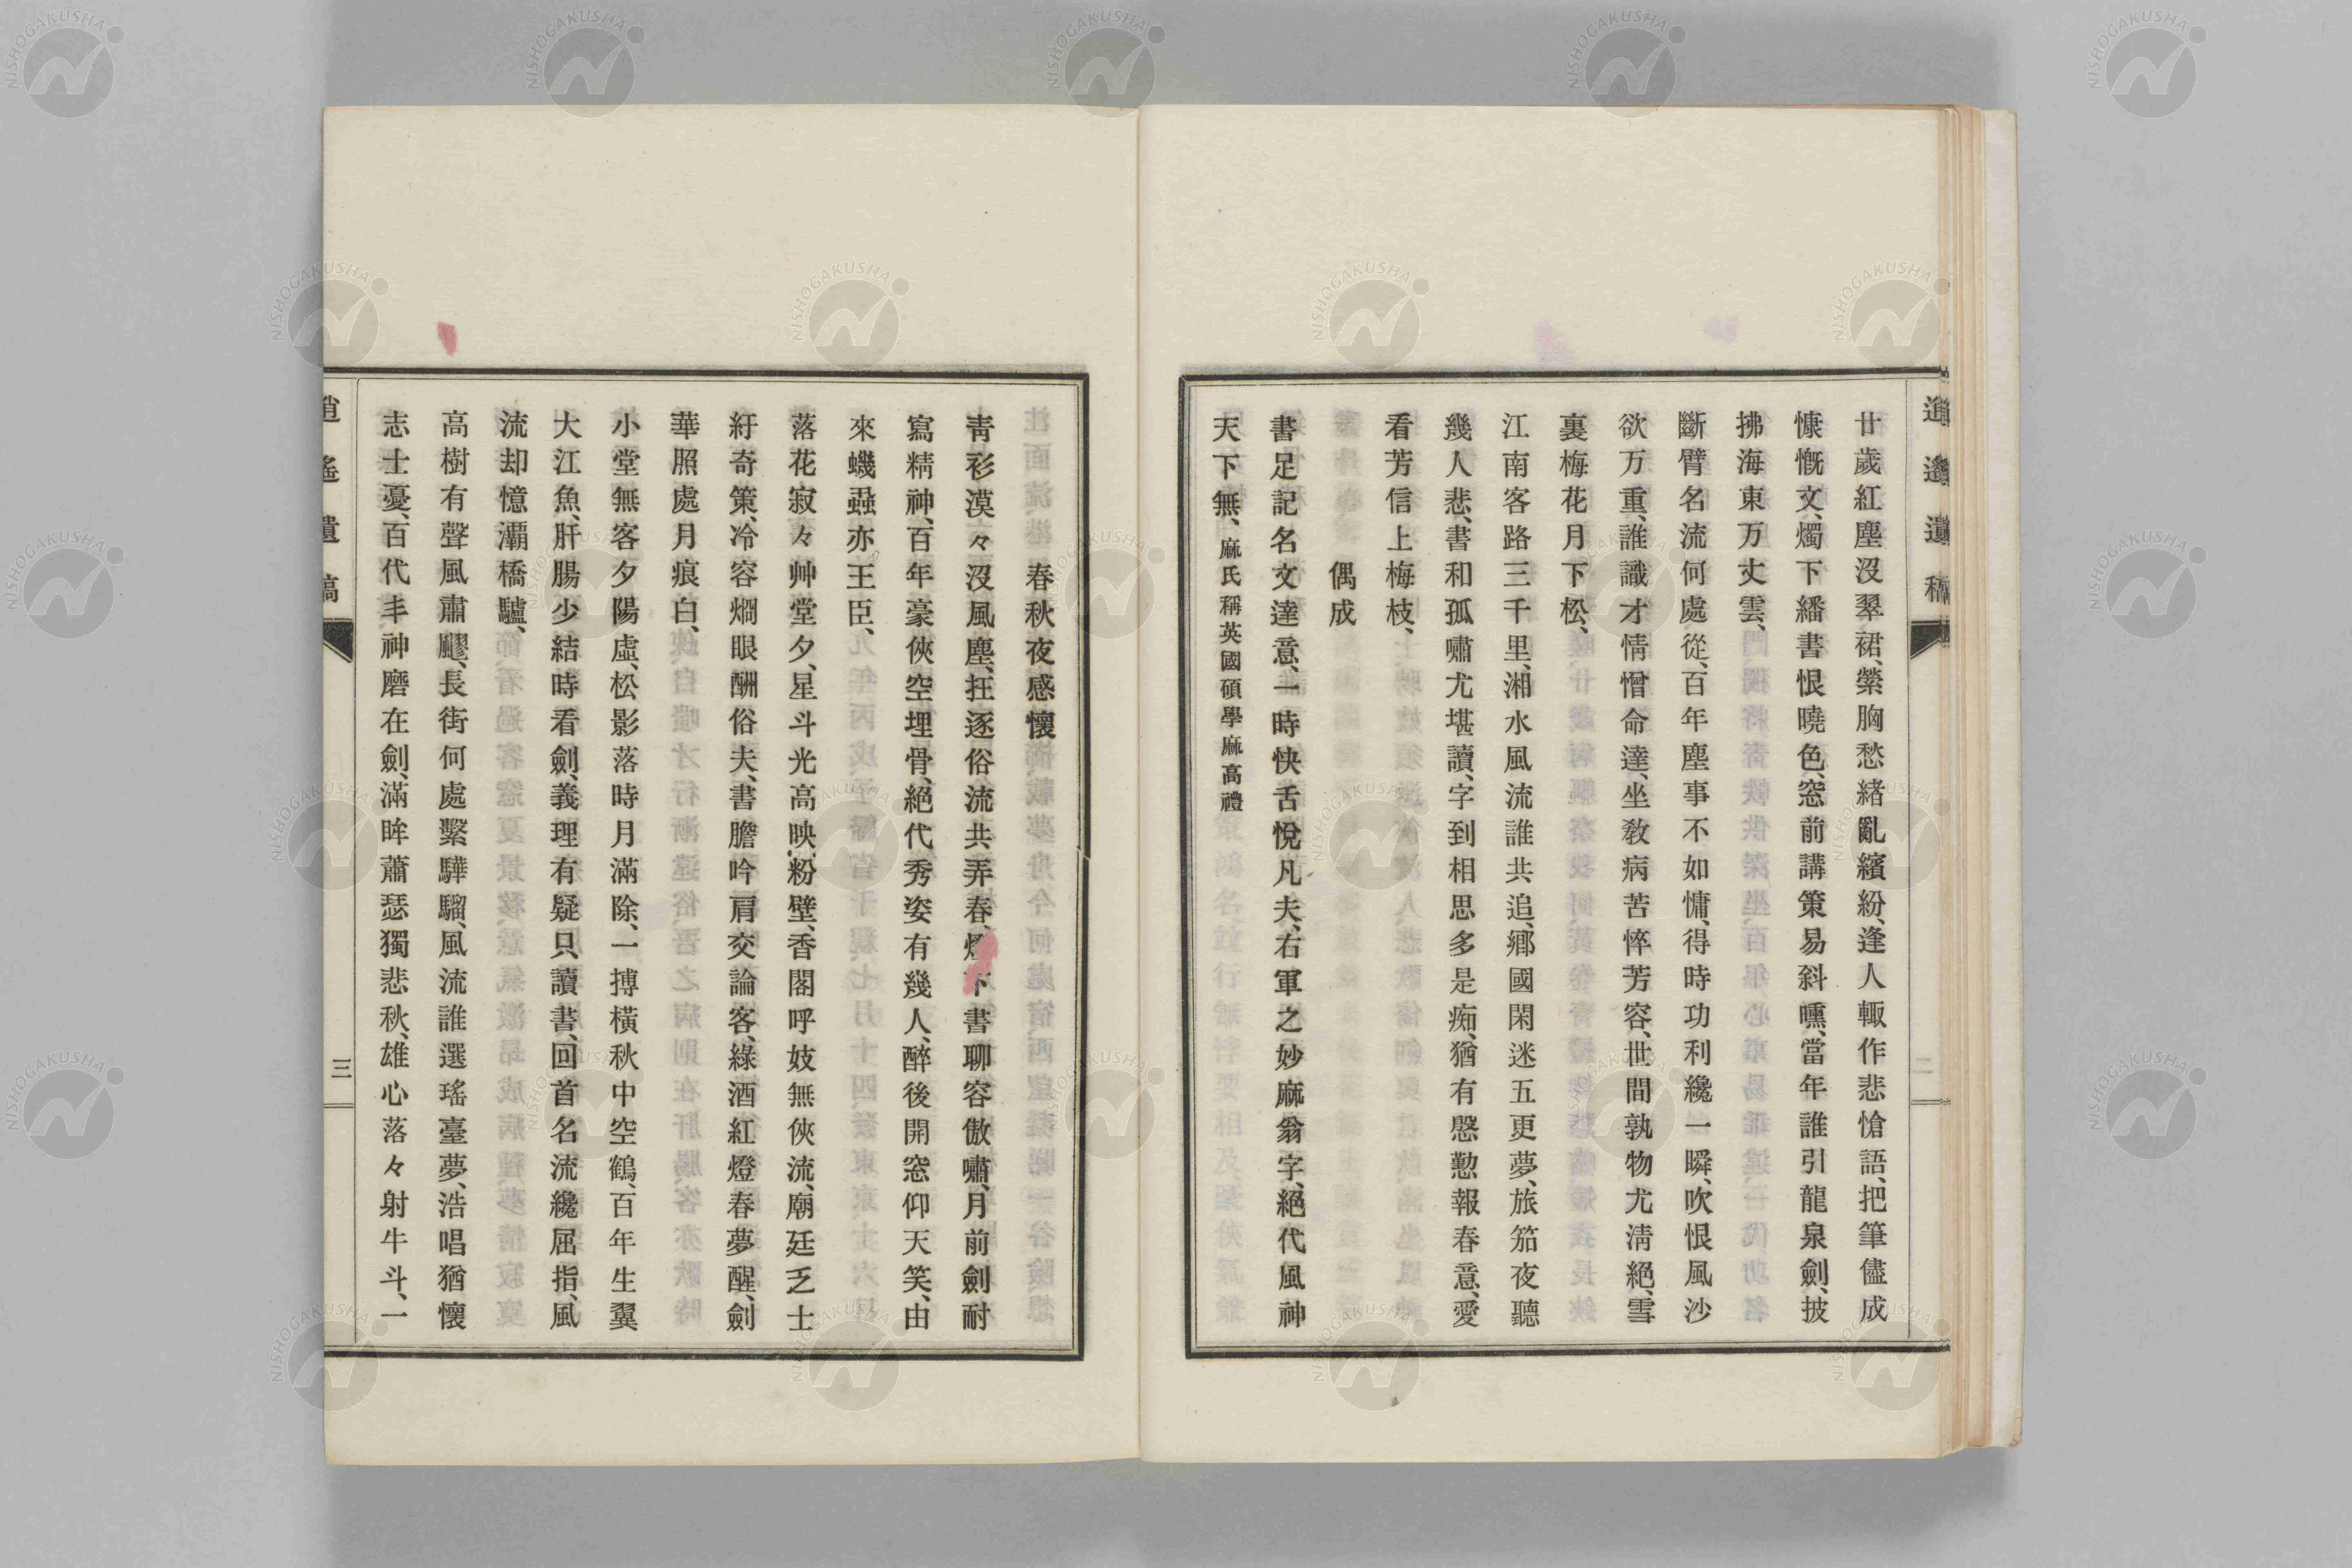 逍遙遺稿
二
廿歲紅塵沒翠裙、縈胸愁緒亂繽紛、逢人輙作悲愴語、把筆儘成
慷慨文、燭下繙書恨曉色、窓前講策易斜曛、當年誰引龍泉劍、披
拂海東万丈雲、
斷臂名流何處從、百年塵事不如慵、得時功利纔一瞬、吹恨風沙
欲万重、誰識才情憎命達、坐敎病苦悴芳容、世間孰物尤淸絕、雪
裏梅花月下松、
江南客路三千里、湘水風流誰共追、鄕國閑迷五更夢、旅笳夜聽
幾人悲、書和孤嘯尤堪讀、字到相思多是痴、猶有慇懃報春意、愛
看芳信上梅枝、
偶成
書足記名文達意、一時快舌悅凡夫、右軍之妙麻翁字、絕代風神
天下無、麻氏稱英國碩學麻高禮
春秋夜感懷
靑衫漠々沒風塵、抂逐俗流共弄春、燈下書聊容傲嘯、月前劍耐
寫精神、百年豪俠空埋骨、絕代秀姿有幾人、醉後開窓仰天笑、由
來蟣蝨亦王臣、
落花寂々艸堂夕、星斗光高映粉壁、香閣呼妓無俠流、廟廷乏士
紆奇策、冷容烱眼酬俗夫、書膽吟肩交論客、綠酒紅燈春夢醒、劍
華照處月痕白、
小堂無客夕陽虛、松影落時月滿除、一搏橫秋中空鶴、百年生翼
大江魚、肝腸少結時看劍、義理有疑只讀書、回首名流纔屈指、風
流却憶灞橋驢、
高樹有聲風肅飂、長街何處繫驊騮、風流誰選瑤臺夢、浩唱猶懷
志士憂、百代丰神磨在劍、滿眸蕭瑟獨悲秋、雄心落々射牛斗、一
逍遙遺稿
三
NISHOGAKUSHA